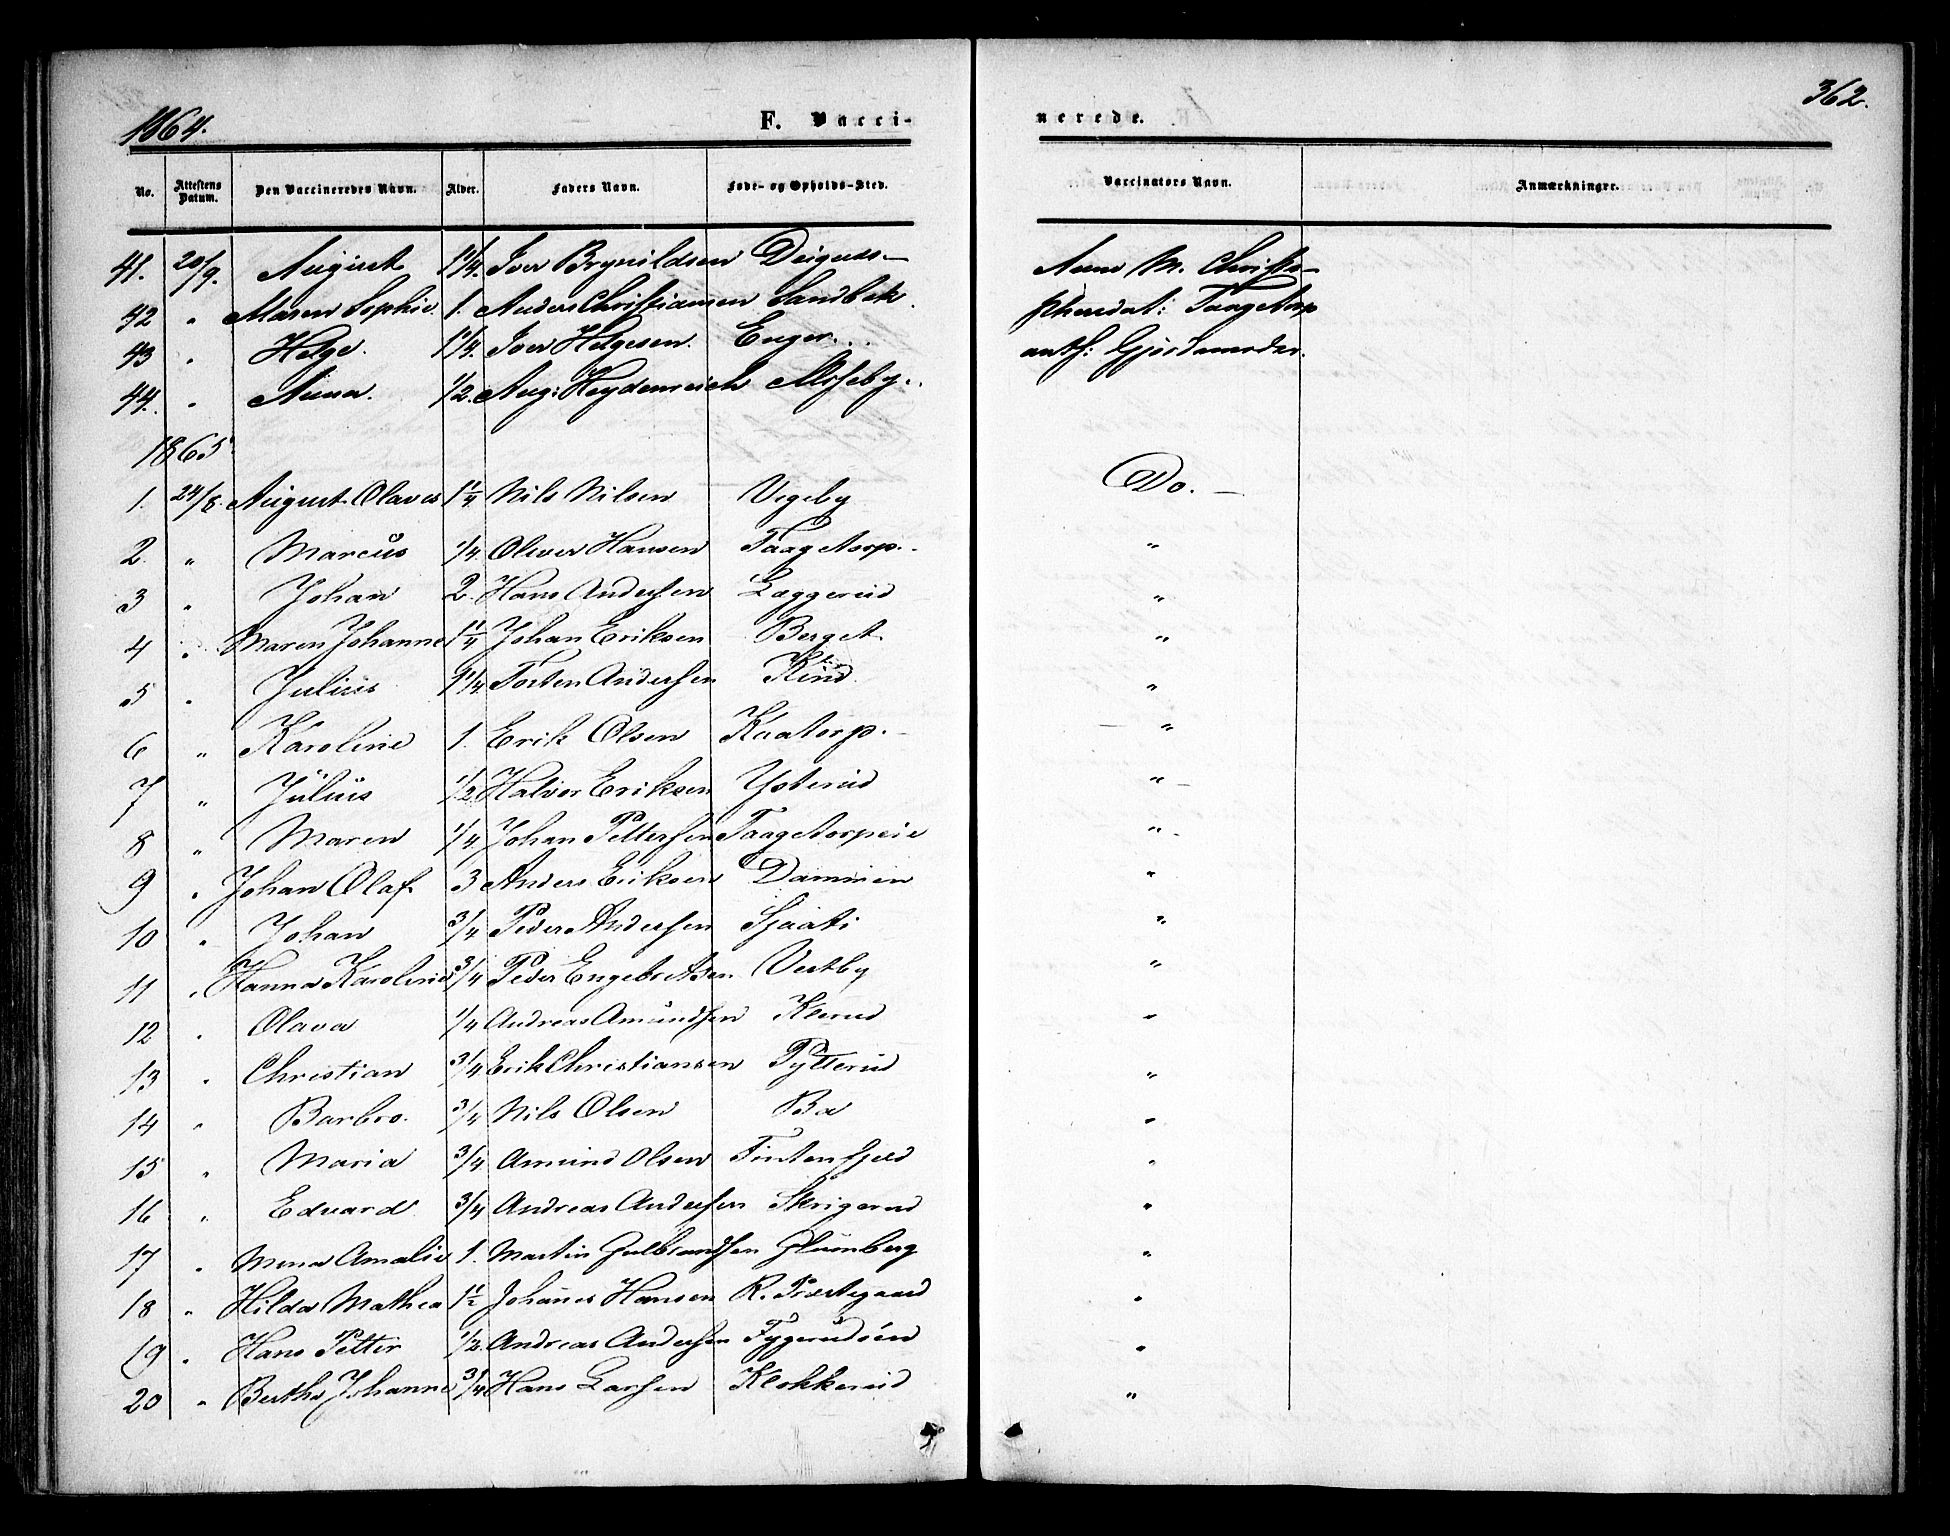 1864.
F. Vacci-
nerede.
362.
No. Attestens Datum. Den Vaccineredes Navn. Alder. Faders Navn. Føde- og Opholds-Sted. Vaccinators Navn. Anmærkninger.
41. 20/9. August 1 1/4. Iver Brynildsen Anne M. Christo-
42 " Maren Sophie. 1. Anders Christiansen Sandbek. phersdat: Taagetorp
43 " Helge. 1 1/4. Iver Helgesen. Enger. auth: Gjordemoder.
44. " Anna. 1/2. Aug: Heydenreich
1865
1. 24/8. August Olaves 1 1/4 Nils Nilsen Vegeby Do. —
2. " Marcus 1/4. Oliver Hansen Taagetorp. "
3 " Johan 2. Hans Andersen Laggerud "
4 " Maren Johanne 1 1/4 Johan Eriksen Berget "
5 " Julius 1 1/4. Andersen Kind. "
6 " Karoline 1. Erik Olsen Kaatorp. "
7 " Julius 1/2 Halvor Eriksen Ysterud "
8 " Maren 1/4. Johan Pettersen Taagetorpeie "
9 " Johan Olaf. 3 Anders Eriksen Dammen "
10 " Johan 3/4 Peder Andersen "
11 " Hanna Karoline 3/4 Peder Engebretsen Vestby "
12 " Olava 1/4 Andreas Amundsen Klerud "
13 " Christian 3/4 Erik Christiansen Pytterud "
14 " Barbro. 3/4 Nils Olsen "
15 " Maria 3/4 Amund Olsen "
16 " Edvard 3/4 Andreas Andersen Skrigerud "
17 " Mina Amalie 1. Martin Gulbrandsen Glumberg "
18 " Hilda Mathea 1 1/2 Johannes Hansen R. Præstegaard "
19 " Hans Petter 1/2. Andreas Andersen "
20 " Bertha Johanne 3/4 Hans Larsen Klokkerud "